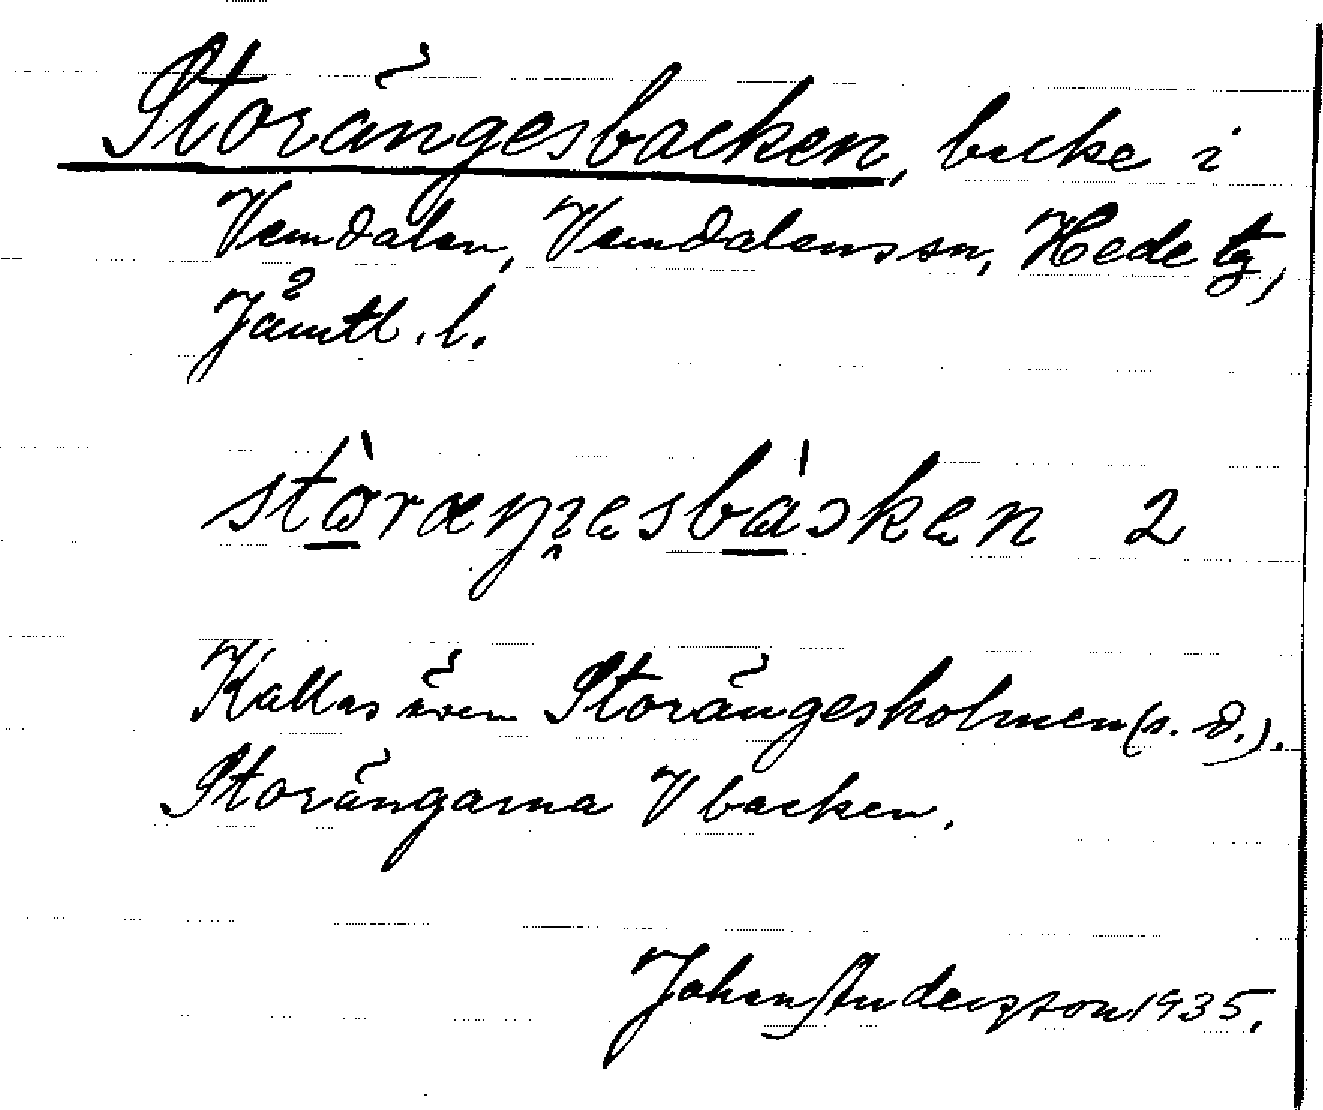 Storängesbacken, backe i
Vemdalen, Vemdalens sn, Hede tg,
Jämtl. l.
2
Kallas även Storängesholmen (s. d.).
Storängarna V backen.
Johan Anderzson 1935.